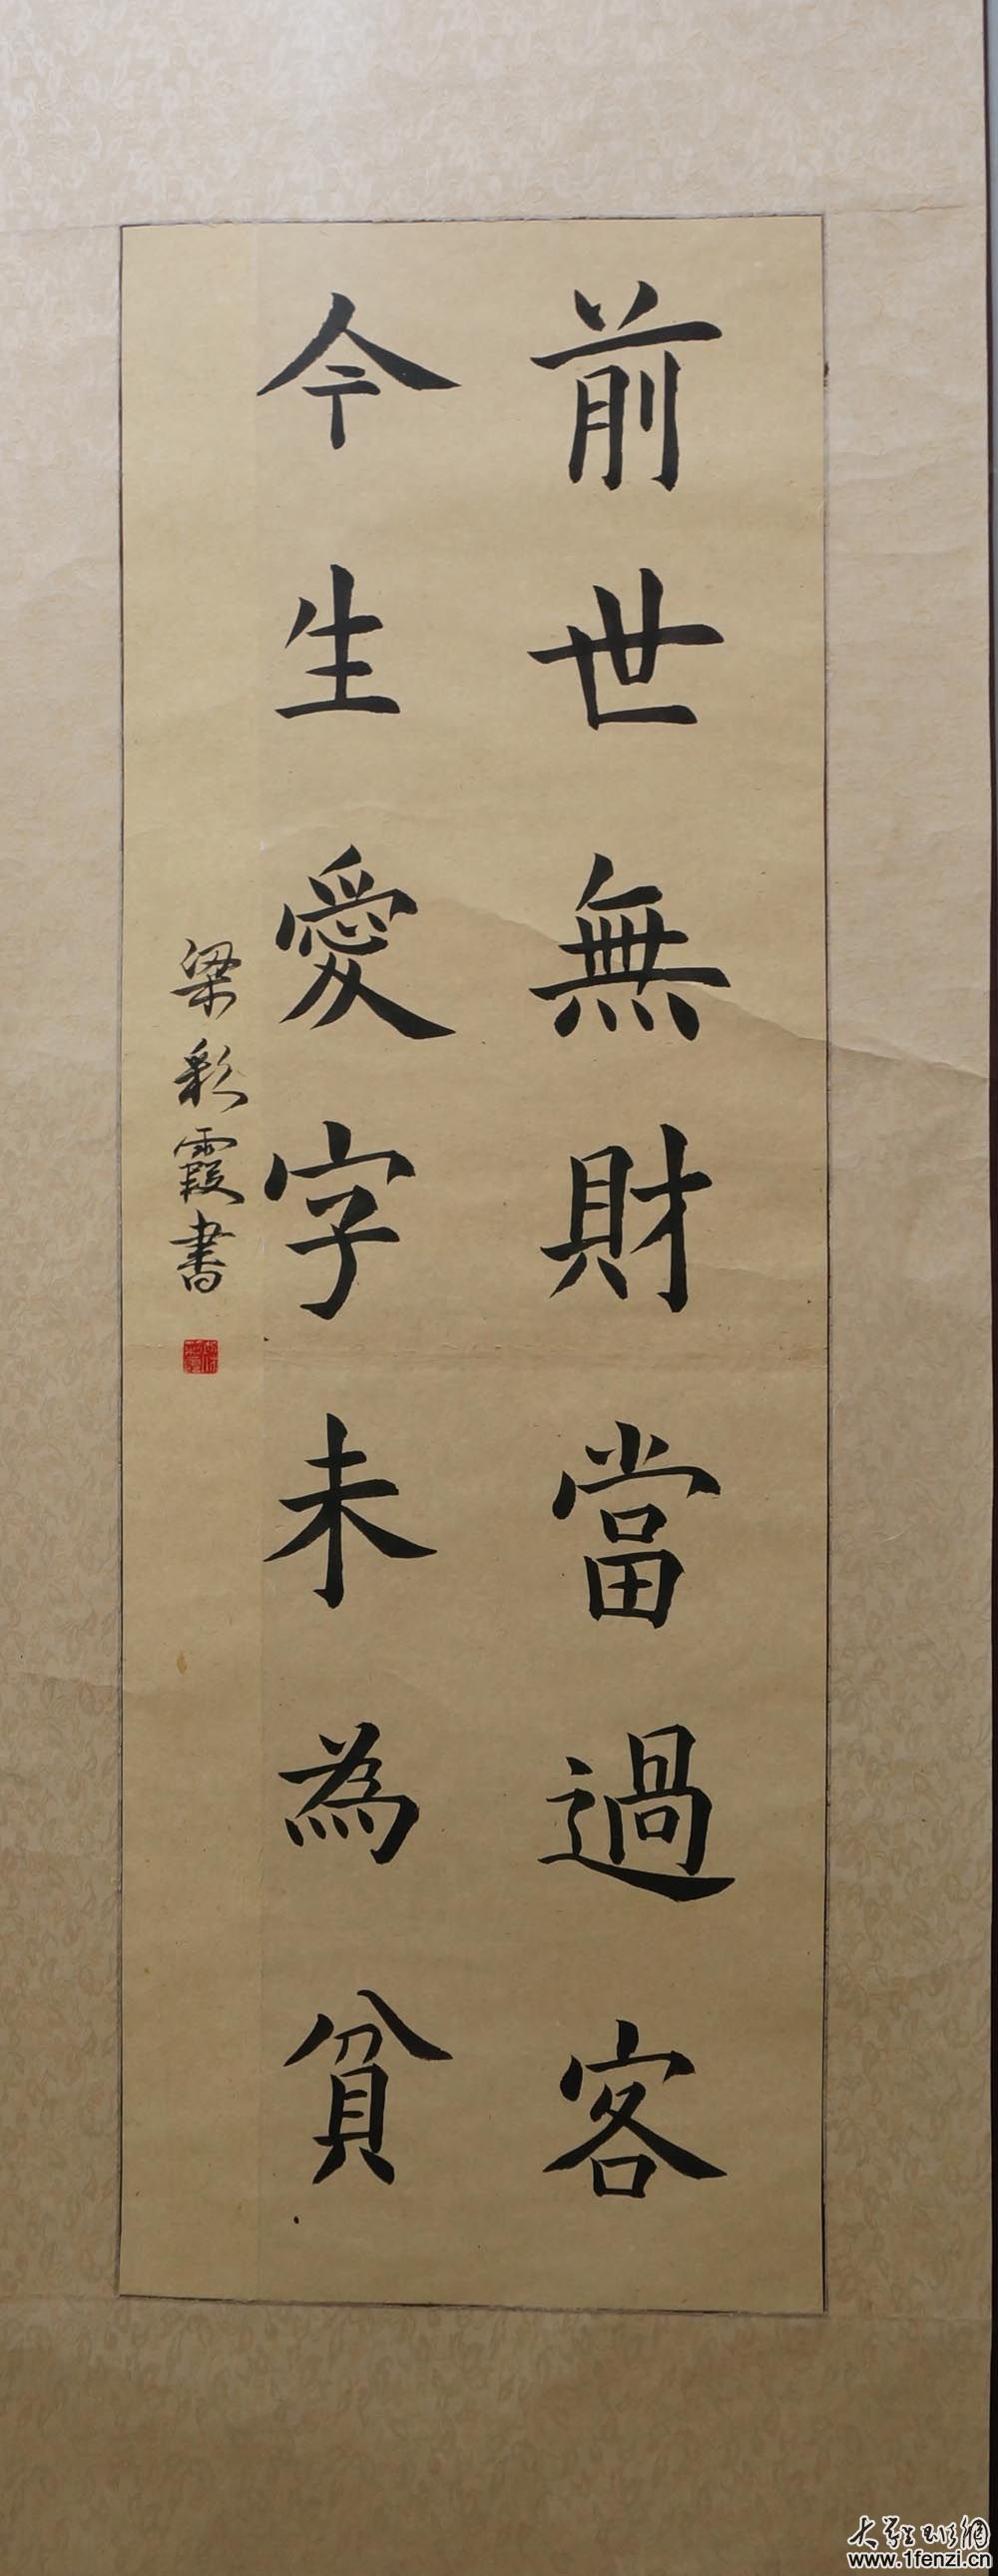 前世無財當過客
今生愛字未為貧
梁彩霞書
www.1fenzi.cn